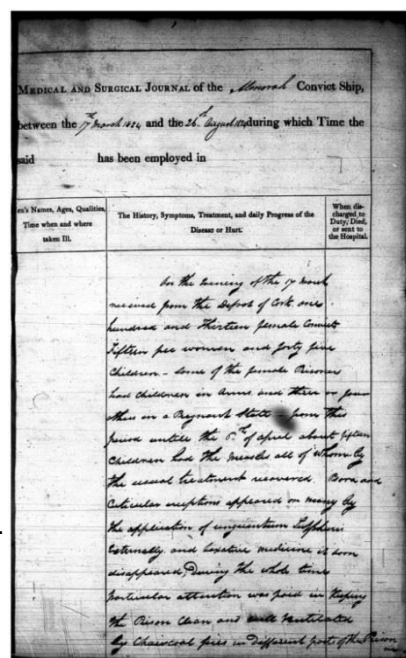 MEDICAL AND SURGICAL JOURNAL of the Almorah Convict Ship,
between the 17th March 1824 and the 26th August 1824 during which Time the
said has been employed in
en's Names, Ages, Qualities,
Time when and where
taken Ill.
The History, Symptoms, Treatment, and daily Progress of the
Disease or Hurt.
When dis-
charged to
Duty, Died,
or sent to
the Hospital.
On the Evening of the 17 March
received from the Depot of Cork one
hundred and thirteen female Convicts
Fifteen free women and forty five
Children - Some of the female Prisoners
had Children in Arms and three or four
others in a Pregnant State - from this
period untill the of April about fifteen
Children had the Measles all of whom by
the usual treatment recovered. and
Cuticular eruptions appeared on many by
the application of unguentum
Externally and laxative medicine it soon
disappeared, During the whole time
particular attention was paid in keeping
the Prison Clean and well Ventilated
by Charcoal fires in Different parts of the Prison